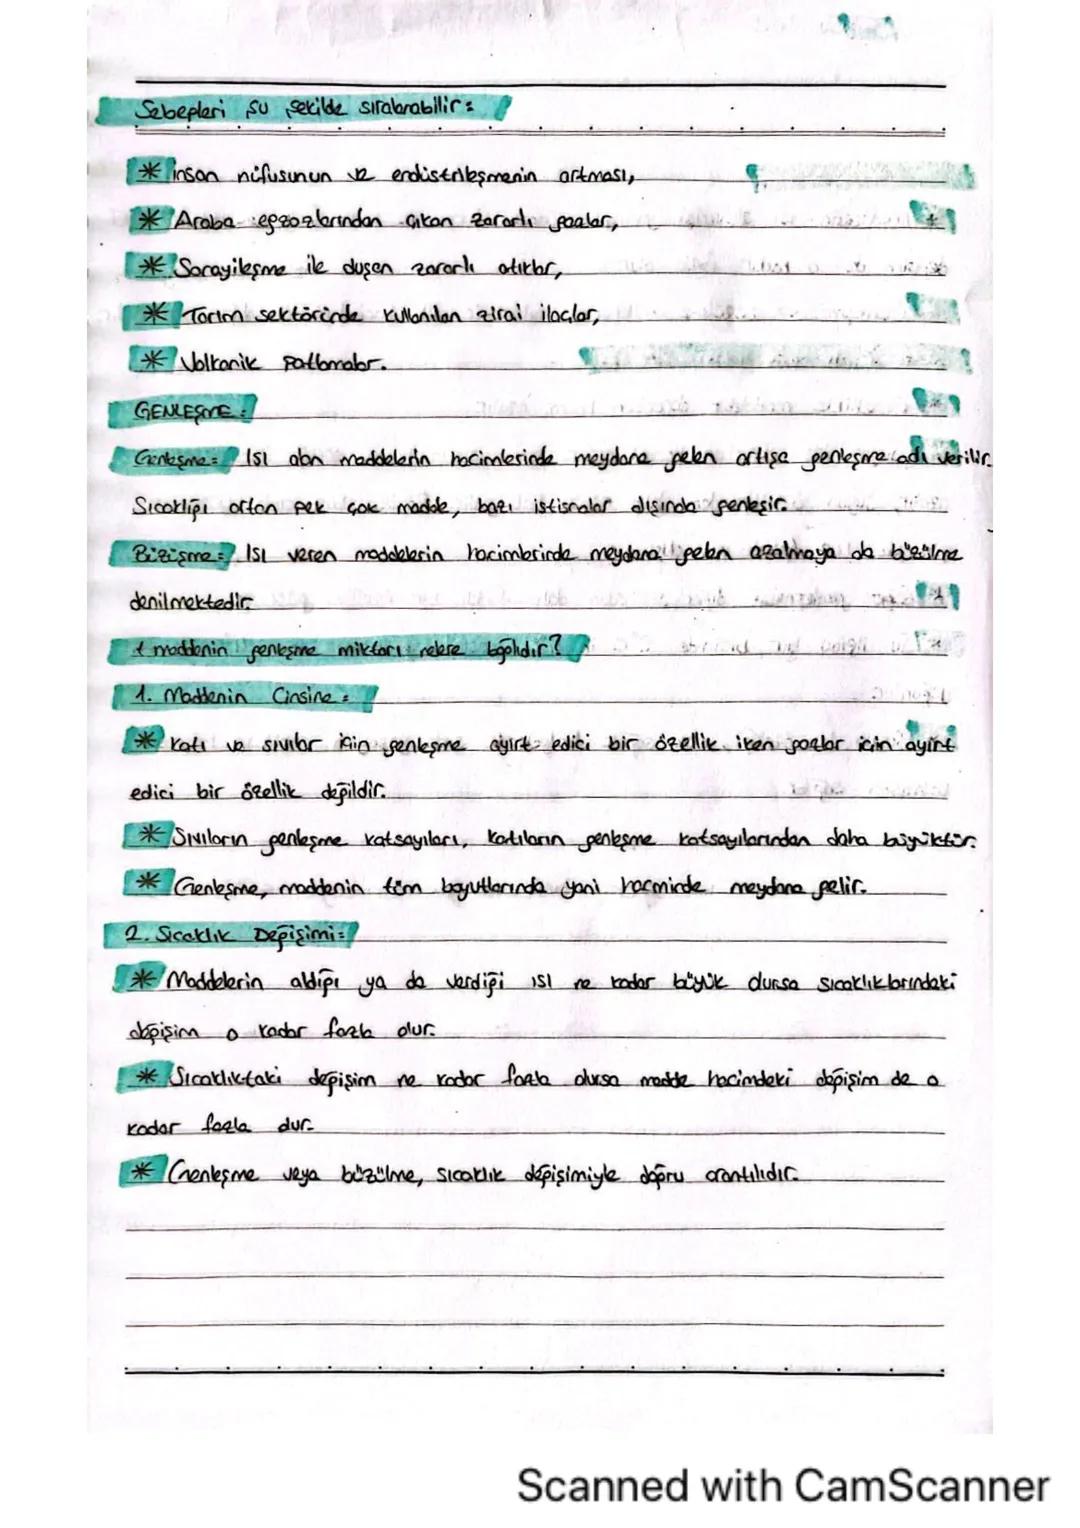 Sebepleri şu şekilde sıralanabilir:
* İnsan nüfusunun ve endüstrileşmenin artması,
* Araba egzozlarından çıkan zararlı gazlar,
* Sanayileşme ile duşen zararlı atıklar,
* Tarım sektöründe kullanılan zirai ilaçlar,
* Volkanik patlmalar.
GENLEŞME:
Genleşme: Isı alan maddelerin hacimlerinde meydana gelen artışa genleşme adı verilir.
Sıcaklığı artan pek çok madde, bazı istisnalar dışında genleşir.
Büzüşme: Isı veren maddelerin hacimlerinde meydana gelen azalmaya da büzülme
denilmektedir.
1 maddenin genleşme miktarı nelere bağlıdır?
1. Maddenin Cinsine:
* Katı ve sıvılar için genleşme ayırt edici bir özellik iken gazlar için ayırt
edici bir özellik değildir.
* Sıvıların genleşme katsayıları, katıların genleşme katsayılarından daha büyüktür.
* Genleşme, maddenin tüm boyutlarında yani hacminde meydana gelir.
2. Sıcaklık Değişimi:
* Maddelerin aldığı ya da verdiği ısı ne kadar büyük olursa sıcaklıklarındaki
değişim o kadar fazla olur.
* Sıcaklıktaki değişim ne kadar fazla olursa madde hacimdeki değişim de o
kadar fazla olur.
* Genleşme veya büzülme, sıcaklık değişimiyle doğru orantılıdır.
Scanned with CamScanner